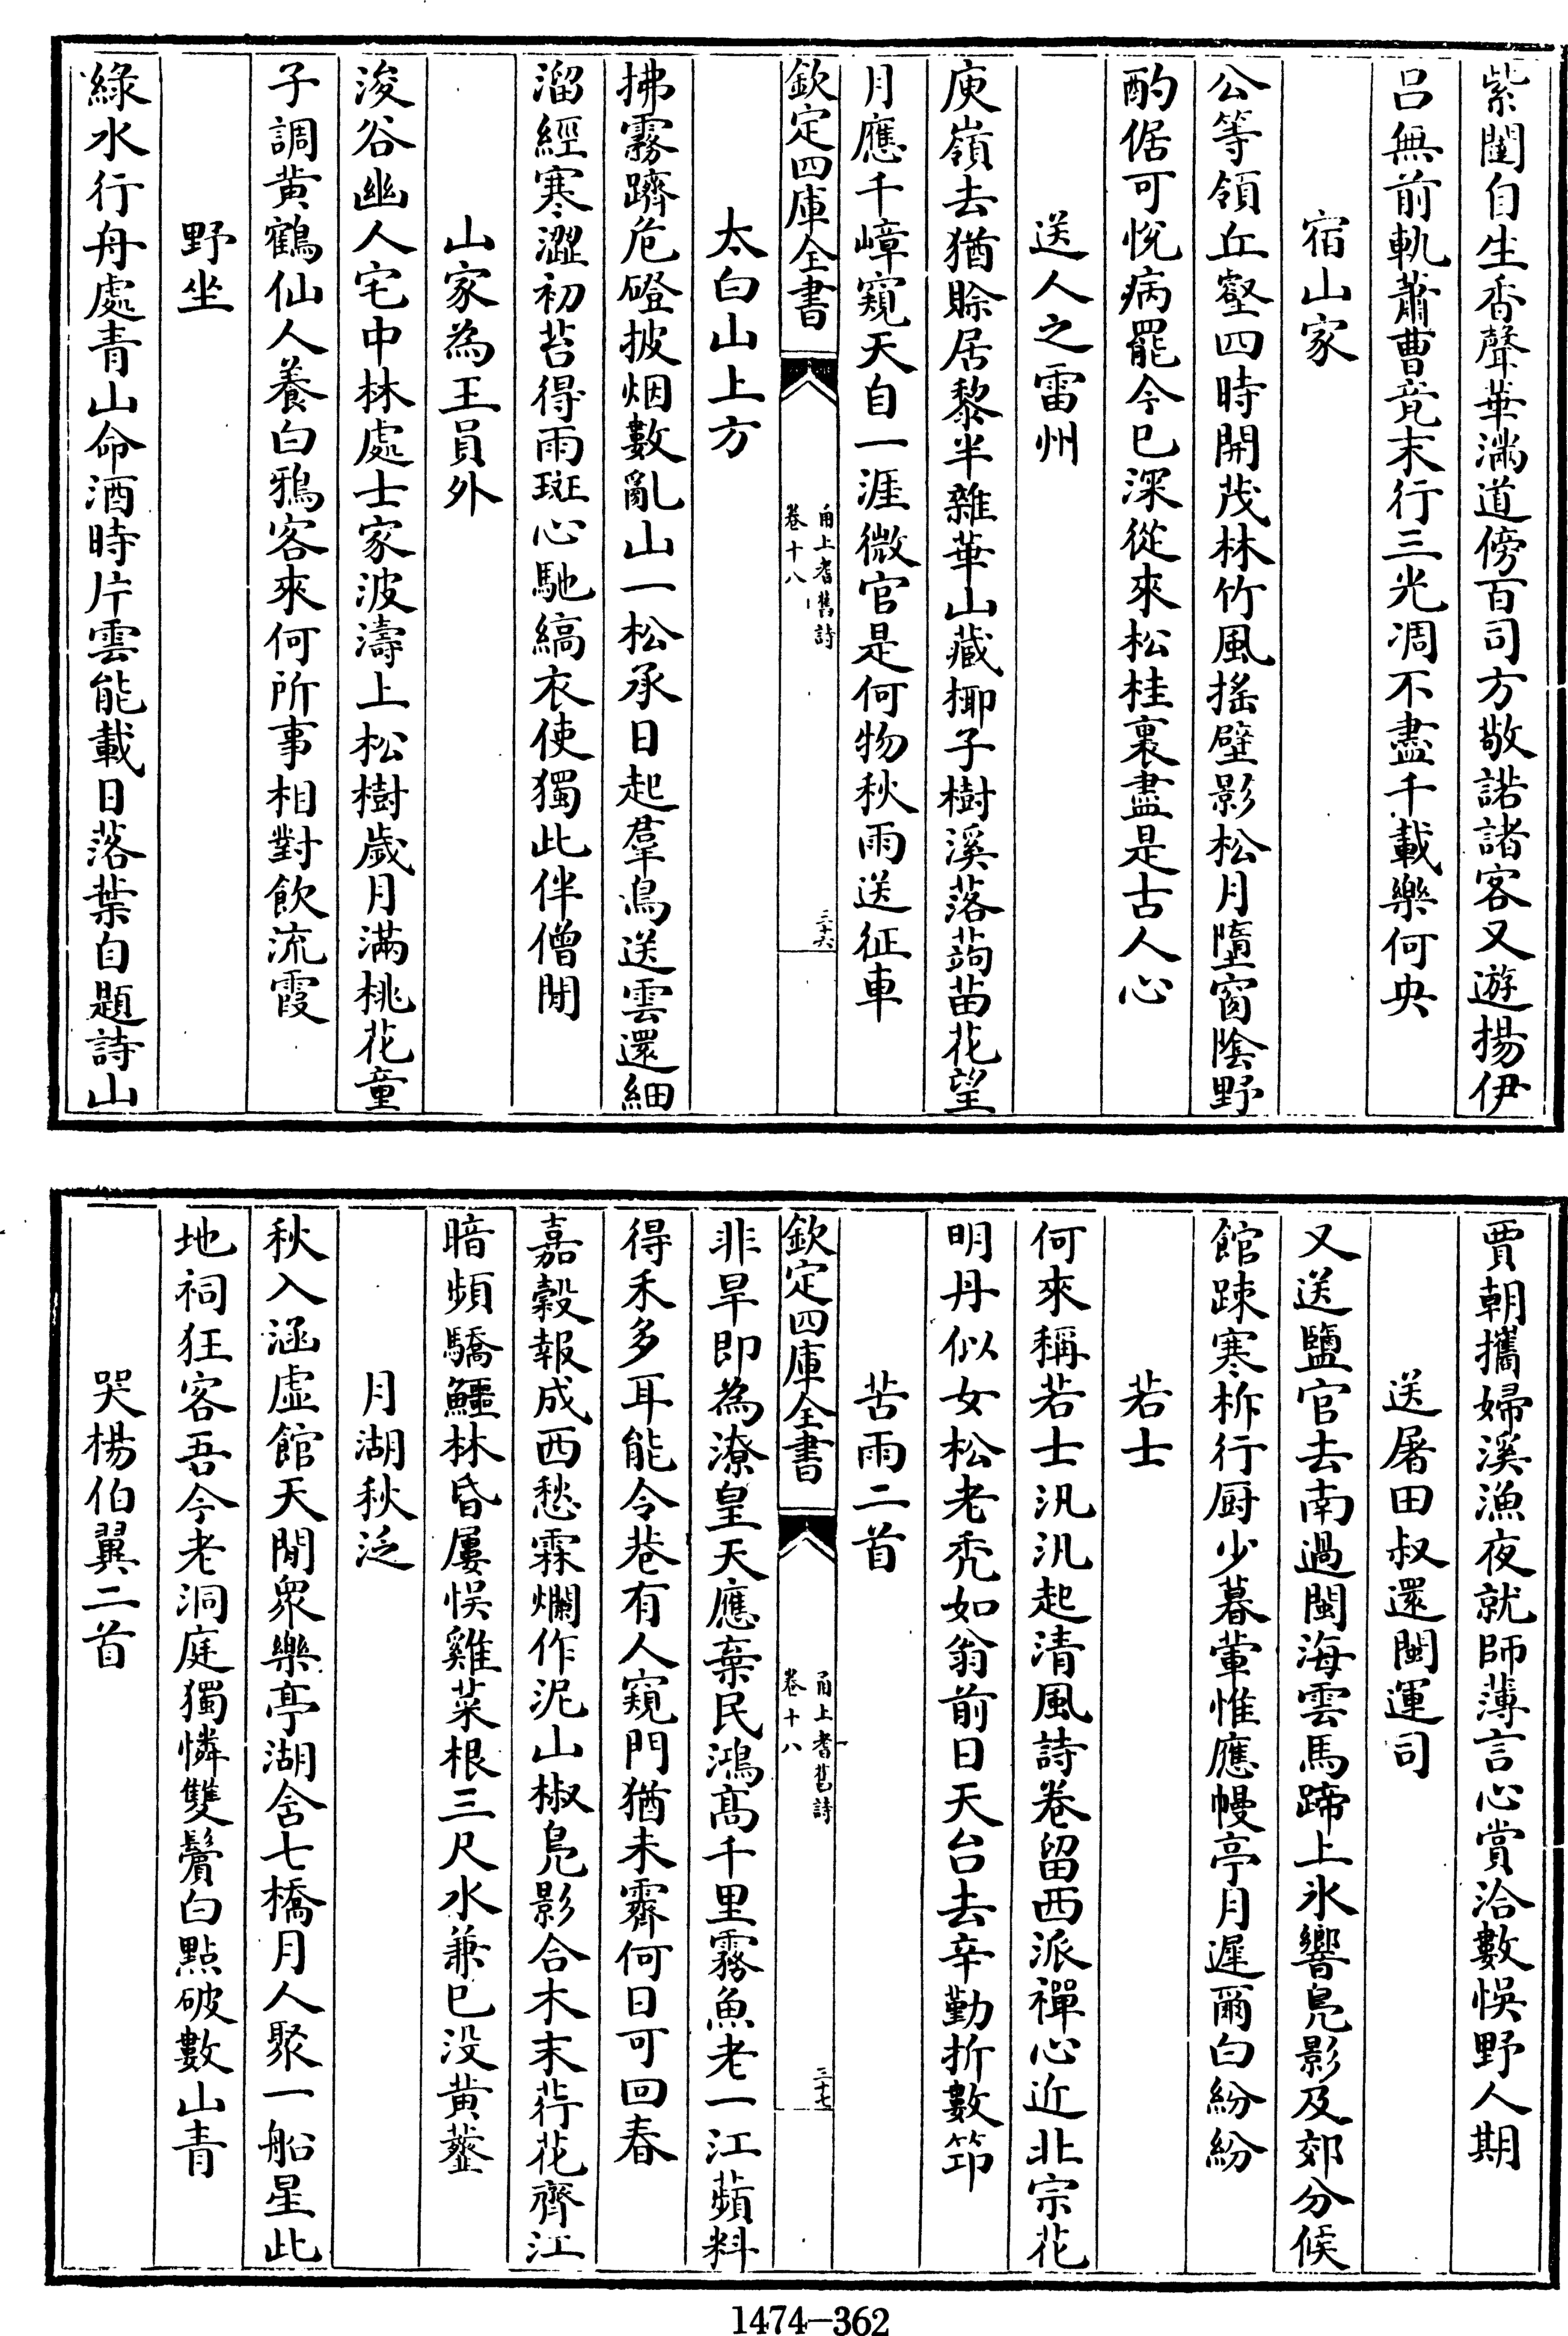 紫闥自生香聲華滿道傍百司方敬諾諸客又遊揚伊
吕無前軌蕭曹竟末行三光凋不盡千載樂何央
宿山家
公等領丘壑四時開茂林竹風搖壁影松月墮窗陰野
酌倨可悦病罷今已深從來松桂裏盡是古人心
送人之雷州
庾嶺去猶賒居黎半雜華山藏揶子樹溪落蒟苗花望
月應千嶂窺天自一涯微官是何物秋雨送征車
欽定四庫全書
甬上耆舊詩
卷十八
三十六
太白山上方
拂霧躋危磴披烟數亂山一松承日起羣鳥送雲還細
溜經寒澀初苔得雨斑心馳縞衣使獨此伴僧閒
山家為王員外
浚谷幽人宅中林處士家波濤上松樹歲月滿桃花童
子調黄鶴仙人養白鴉客來何所事相對飲流霞
野坐
綠水行舟處青山命酒時片雲能載日落葉自題詩山
賈朝攜婦溪漁夜就師薄言心賞洽數悞野人期
送屠田叔還閩運司
又送鹽官去南過閩海雲馬蹄上氷響鳧影及郊分候
館踈寒柝行厨少暮葷惟應幔亭月遲爾白紛紛
若士
何來稱若士汎汎起清風詩卷留西派禪心近北宗花
明丹似女松老秃如翁前日天台去辛勤折數笻
苦雨二首
欽定四庫全書
甬上耆舊詩
卷十八
三十七
非旱即為潦皇天應棄民鴻髙千里霧魚老一江蘋料
得禾多耳能令巷有人窺門猶未霽何日可回春
嘉穀報成西愁霖爛作泥山椒鳧影合木末荇花齊江
暗頻驕鱷林昏屢悞雞菜根三尺水兼已没黄虀
月湖秋泛
秋入涵虚館天閒衆樂亭湖含七橋月人聚一船星此
地祠狂客吾今老洞庭獨憐雙鬢白點破數山青
哭楊伯翼二首
1474—362